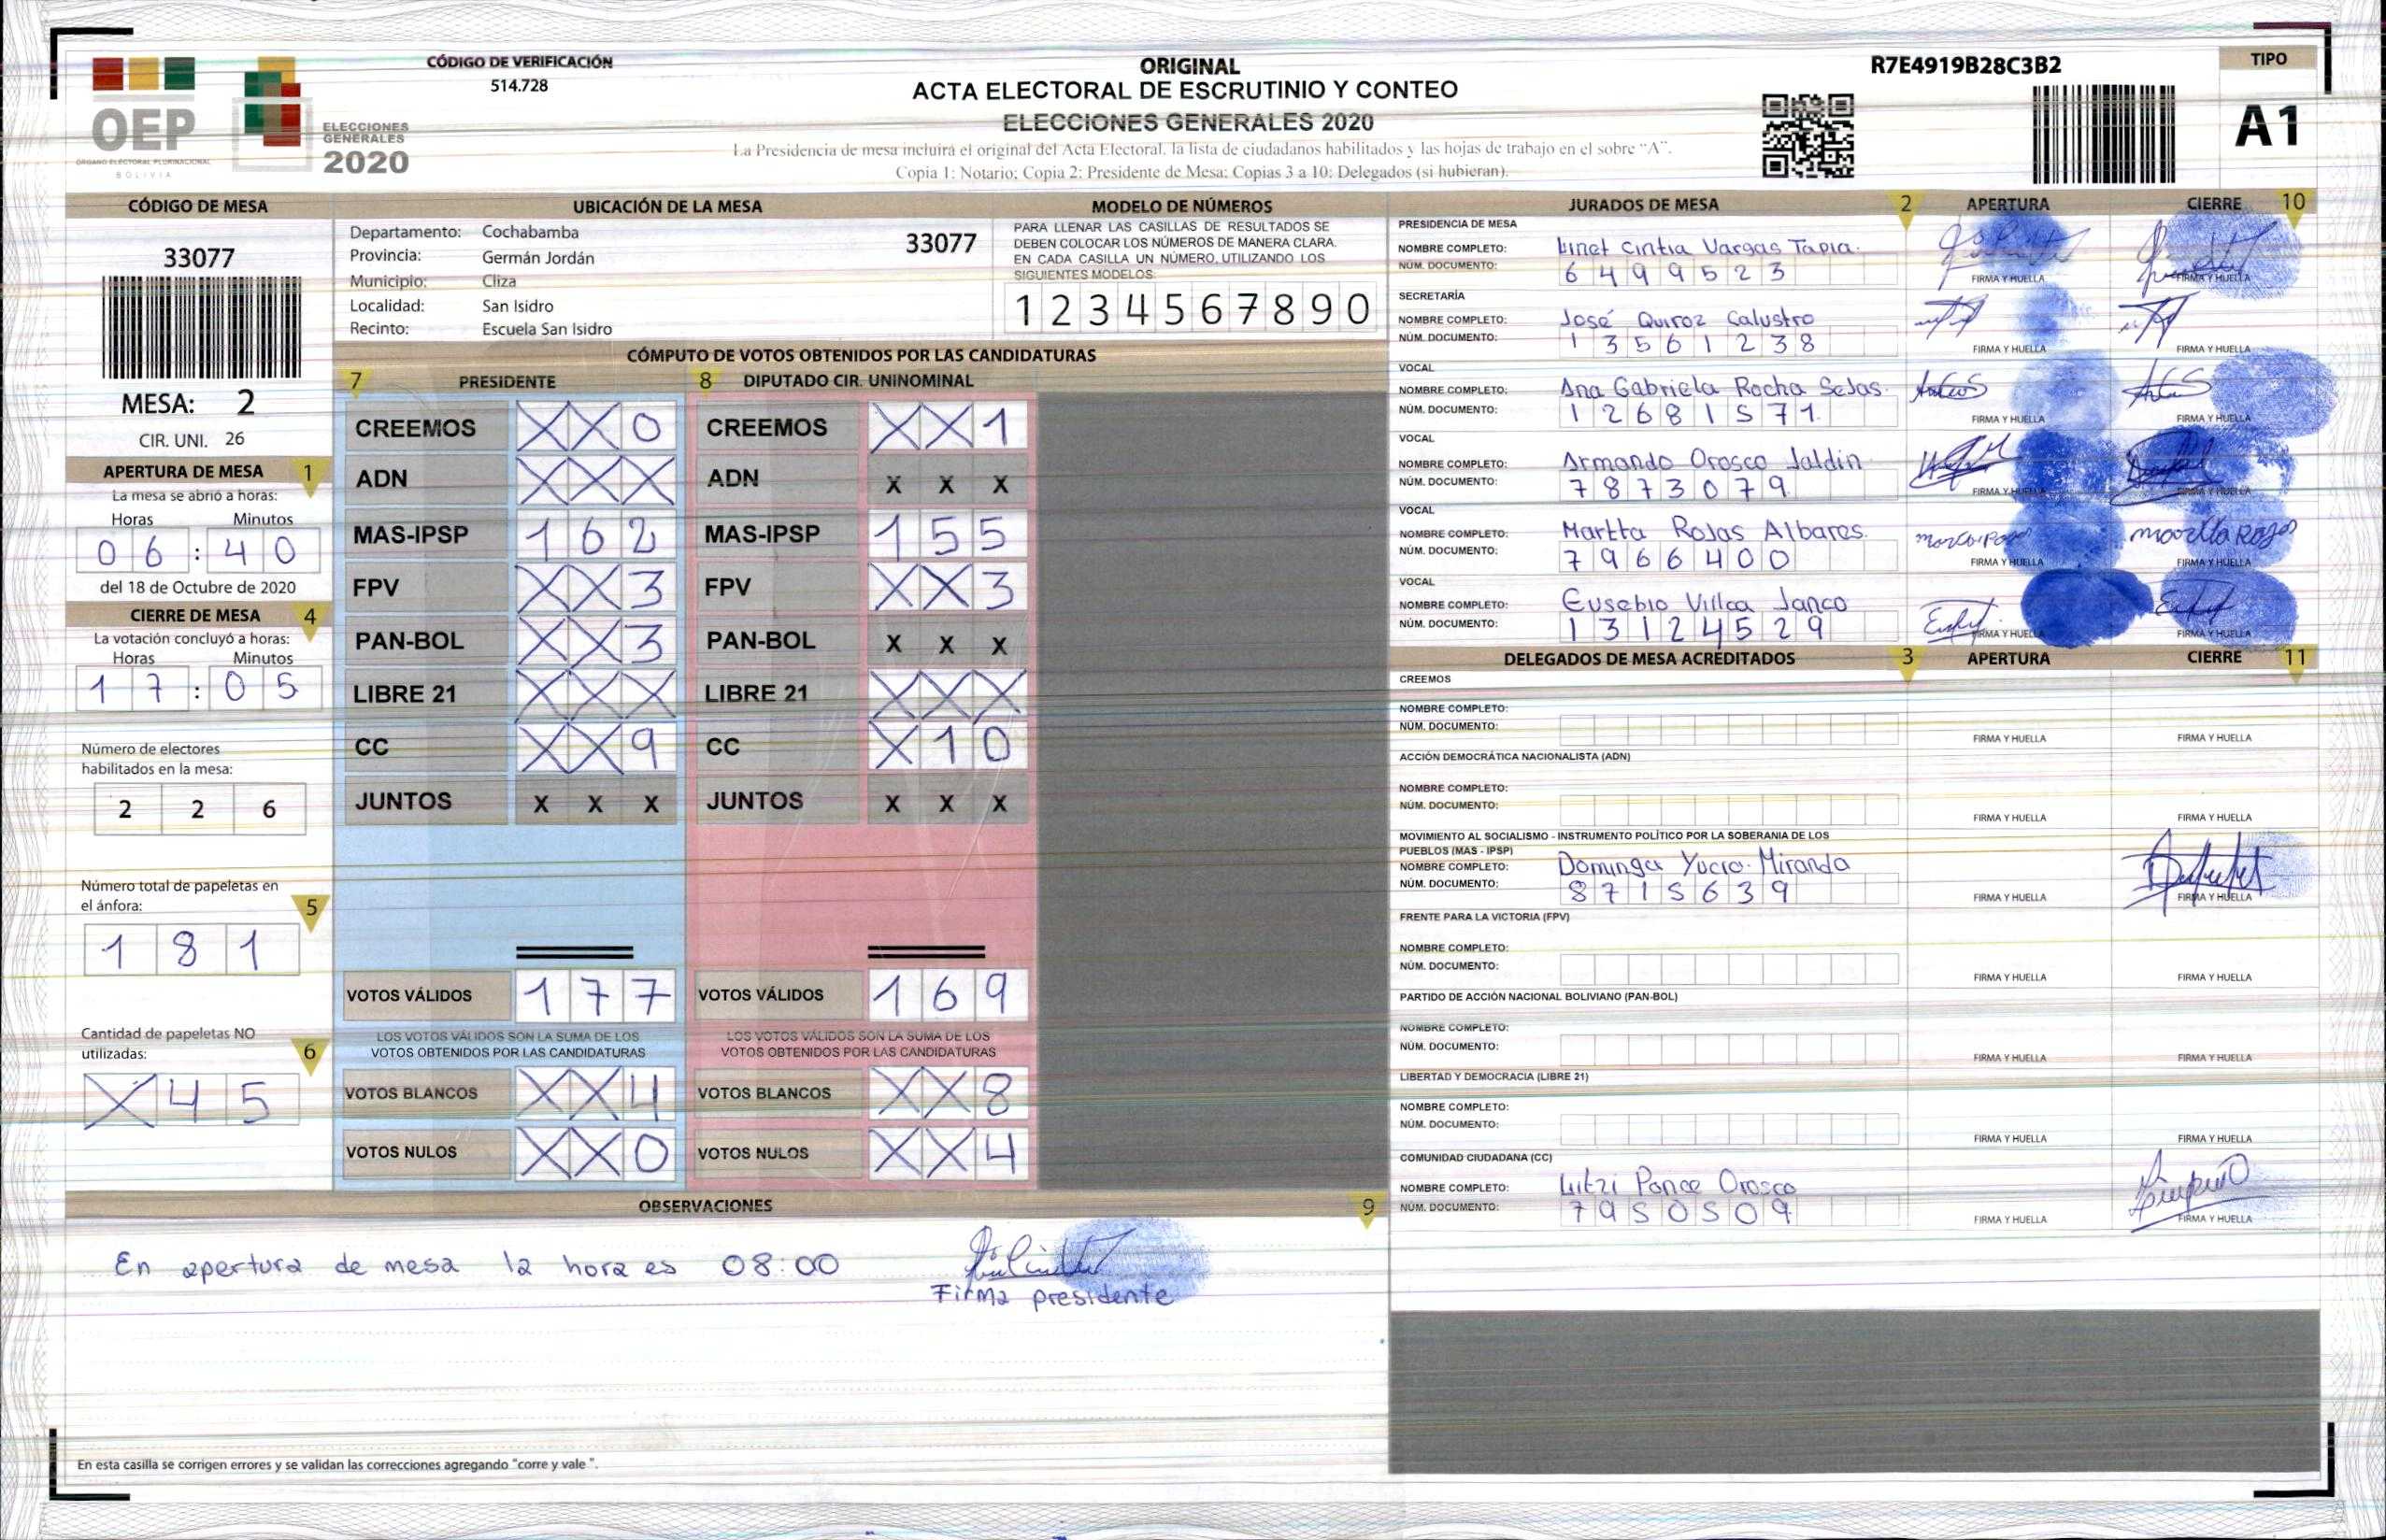 CÓDIGO DE VERIFICACIÓN
514.728
OEP
ÓRGANO ELECTORAL PLURINACIONAL
BOLIVIA
ELECCIONES
GENERALES
2020
ORIGINAL
ACTA ELECTORAL DE ESCRUTINIO Y CONTEO
ELECCIONES GENERALES 2020
La Presidencia de mesa incluirá el original del Acta Electoral, la lista de ciudadanos habilitados y las hojas de trabajo en el sobre "A".
Copia 1: Notario; Copia 2: Presidente de Mesa; Copias 3 a 10: Delegados (si hubieran).
R7E4919B28C3B2
TIPO
A1
CÓDIGO DE MESA
33077
MESA: 2
CIR. UNI. 26
APERTURA DE MESA 1
La mesa se abrió a horas:
Horas Minutos
0 6 : 4 0
del 18 de Octubre de 2020
CIERRE DE MESA 4
La votación concluyó a horas:
Horas Minutos
1 7 : 0 5
Número de electores
habilitados en la mesa:
2 2 6
Número total de papeletas en
el ánfora: 5
1 8 1
Cantidad de papeletas NO
utilizadas: 6
X 4 5
UBICACIÓN DE LA MESA
Departamento: Cochabamba
Provincia: Germán Jordán
Municipio: Cliza
Localidad: San Isidro
Recinto: Escuela San Isidro
33077
MODELO DE NÚMEROS
PARA LLENAR LAS CASILLAS DE RESULTADOS SE
DEBEN COLOCAR LOS NÚMEROS DE MANERA CLARA.
EN CADA CASILLA UN NÚMERO, UTILIZANDO LOS
SIGUIENTES MODELOS:
1 2 3 4 5 6 7 8 9 0
CÓMPUTO DE VOTOS OBTENIDOS POR LAS CANDIDATURAS
7 PRESIDENTE
CREEMOS X X 0
ADN X X X
MAS-IPSP 1 6 2
FPV X X 3
PAN-BOL X X 3
LIBRE 21 X X X
CC X X 9
JUNTOS X X X
VOTOS VÁLIDOS 1 7 7
LOS VOTOS VÁLIDOS SON LA SUMA DE LOS
VOTOS OBTENIDOS POR LAS CANDIDATURAS
VOTOS BLANCOS X X 4
VOTOS NULOS X X 0
8 DIPUTADO CIR. UNINOMINAL
CREEMOS X X 1
ADN X X X
MAS-IPSP 1 5 5
FPV X X 3
PAN-BOL X X X
LIBRE 21 X X X
CC X 1 0
JUNTOS X X X
VOTOS VÁLIDOS 1 6 9
LOS VOTOS VÁLIDOS SON LA SUMA DE LOS
VOTOS OBTENIDOS POR LAS CANDIDATURAS
VOTOS BLANCOS X X 8
VOTOS NULOS X X 4
OBSERVACIONES 9
En apertura de mesa la hora es 08:00
Firma presidente
En esta casilla se corrigen errores y se validan las correcciones agregando "corre y vale ".
JURADOS DE MESA 2 APERTURA CIERRE 10
PRESIDENCIA DE MESA
NOMBRE COMPLETO: Linet Cintia Vargas Tapia.
NÚM. DOCUMENTO: 6 4 9 9 5 2 3
FIRMA Y HUELLA FIRMA Y HUELLA
SECRETARÍA
NOMBRE COMPLETO: José Quiroz Galustro
NÚM. DOCUMENTO: 1 3 5 6 1 2 3 8
FIRMA Y HUELLA FIRMA Y HUELLA
VOCAL
NOMBRE COMPLETO: Ana Gabriela Rocha Sejas.
NÚM. DOCUMENTO: 1 2 6 8 1 5 7 1
FIRMA Y HUELLA FIRMA Y HUELLA
VOCAL
NOMBRE COMPLETO: Armando Orosco Jaldin
NÚM. DOCUMENTO: 7 8 7 3 0 7 9
FIRMA Y HUELLA FIRMA Y HUELLA
VOCAL
NOMBRE COMPLETO: Martta Rojas Albares.
NÚM. DOCUMENTO: 7 9 6 6 4 0 0
FIRMA Y HUELLA FIRMA Y HUELLA
VOCAL
NOMBRE COMPLETO: Eusebio Villca Janco
NÚM. DOCUMENTO: 1 3 1 2 4 5 2 9
FIRMA Y HUELLA FIRMA Y HUELLA
DELEGADOS DE MESA ACREDITADOS 3 APERTURA CIERRE 11
CREEMOS
NOMBRE COMPLETO:
NÚM. DOCUMENTO:
FIRMA Y HUELLA FIRMA Y HUELLA
ACCIÓN DEMOCRÁTICA NACIONALISTA (ADN)
NOMBRE COMPLETO:
NÚM. DOCUMENTO:
FIRMA Y HUELLA FIRMA Y HUELLA
MOVIMIENTO AL SOCIALISMO - INSTRUMENTO POLÍTICO POR LA SOBERANIA DE LOS
PUEBLOS (MAS - IPSP)
NOMBRE COMPLETO: Dominga Yucra Miranda
NÚM. DOCUMENTO: 8 7 1 5 6 3 9
FIRMA Y HUELLA FIRMA Y HUELLA
FRENTE PARA LA VICTORIA (FPV)
NOMBRE COMPLETO:
NÚM. DOCUMENTO:
FIRMA Y HUELLA FIRMA Y HUELLA
PARTIDO DE ACCIÓN NACIONAL BOLIVIANO (PAN-BOL)
NOMBRE COMPLETO:
NÚM. DOCUMENTO:
FIRMA Y HUELLA FIRMA Y HUELLA
LIBERTAD Y DEMOCRACIA (LIBRE 21)
NOMBRE COMPLETO:
NÚM. DOCUMENTO:
FIRMA Y HUELLA FIRMA Y HUELLA
COMUNIDAD CIUDADANA (CC)
NOMBRE COMPLETO: Litzi Ponce Orosco
NÚM. DOCUMENTO: 7 9 5 0 5 0 9
FIRMA Y HUELLA FIRMA Y HUELLA